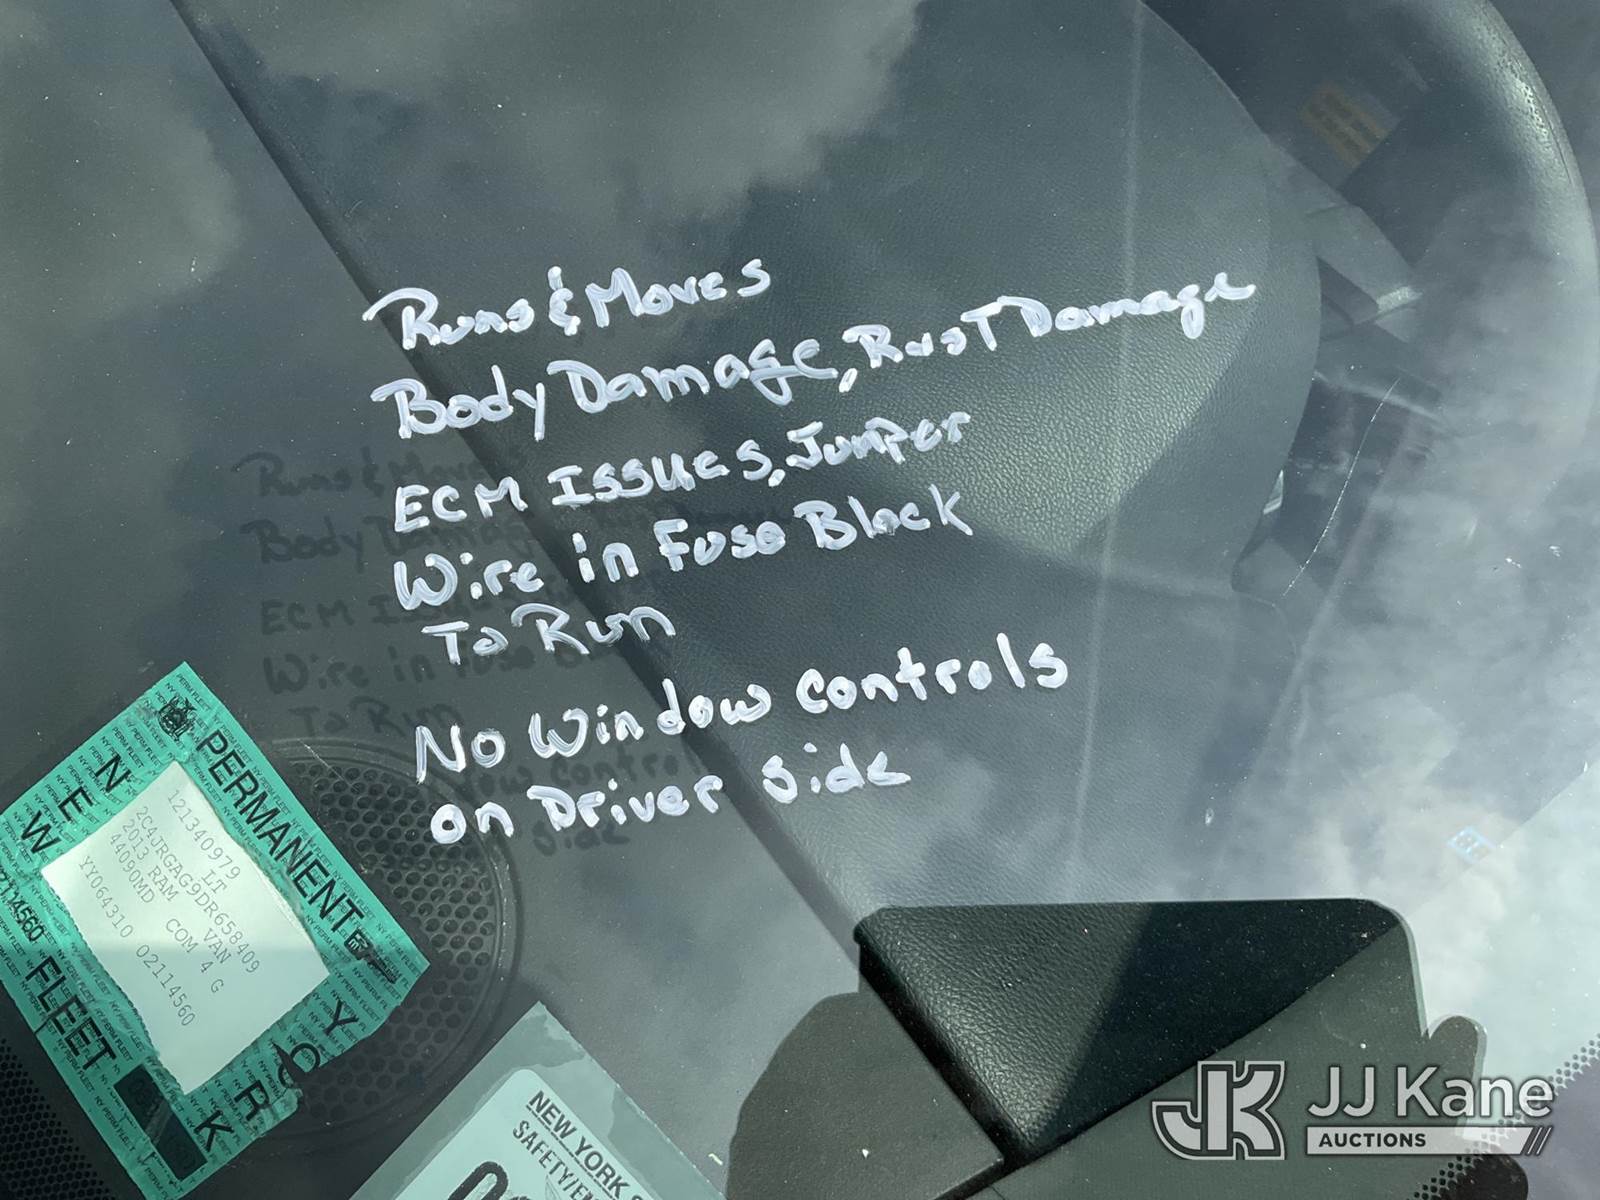 Runs & Moves
Body Damage, Rust Damage
ECM Issues, Jumper
Wire in Fuse Block
To Run
No Window Controls
on Driver Side
NEW YORK
PERMANENT
FLEET
121340979
LT
2C4JRGAG9DR658409
2013 RAM VAN
44090MD COM 4 G
YY0643110 02114560
02114560
NEW YORK S
SAFETY/EM
JJ Kane
AUCTIONS